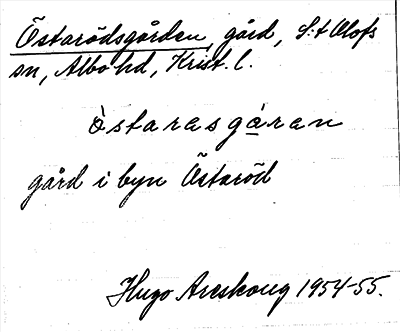 Östarödsgården, gård, S:t Olofs
sn, Albo hd, Krist. l.
östarasgáran
gård i byn Östaröd
Hugo Areskoug 1954-55.